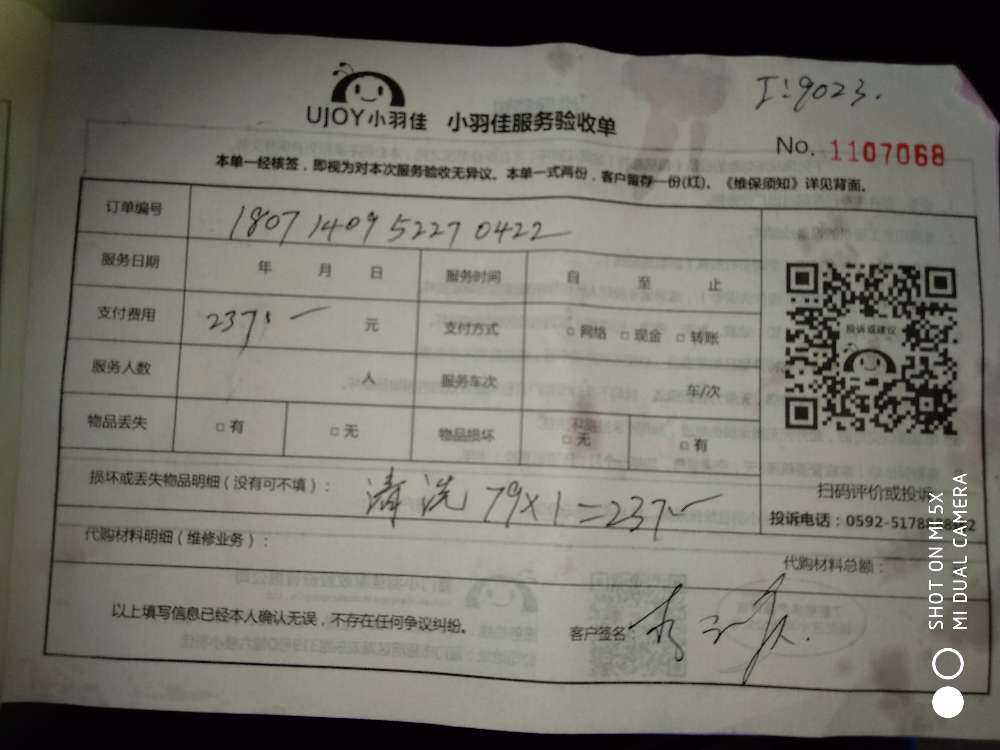 I:9023.
UJOY小羽佳 小羽佳服务验收单
No. 1107068
本单一经核签，即视为对本次服务验收无异议。本单一式两份，客户留存一份(红)。《维保须知》详见背面。
订单编号 180714095227 0422
服务日期 年 月 日 服务时间 自 至 止
支付费用 237.— 元 支付方式 □网络 □现金 □转账
投诉或建议
服务人数 人 服务车次 车/次
物品丢失 □有 □无 物品损坏 □无 □有
损坏或丢失物品明细（没有可不填）： 清洗 79×1=237.—
扫码评价或投诉
投诉电话：0592-5178
代购材料明细（维修业务）：
代购材料总额：
以上填写信息已经本人确认无误，不存在任何争议纠纷。
客户签名：
SHOT ON MI 5X
MI DUAL CAMERA